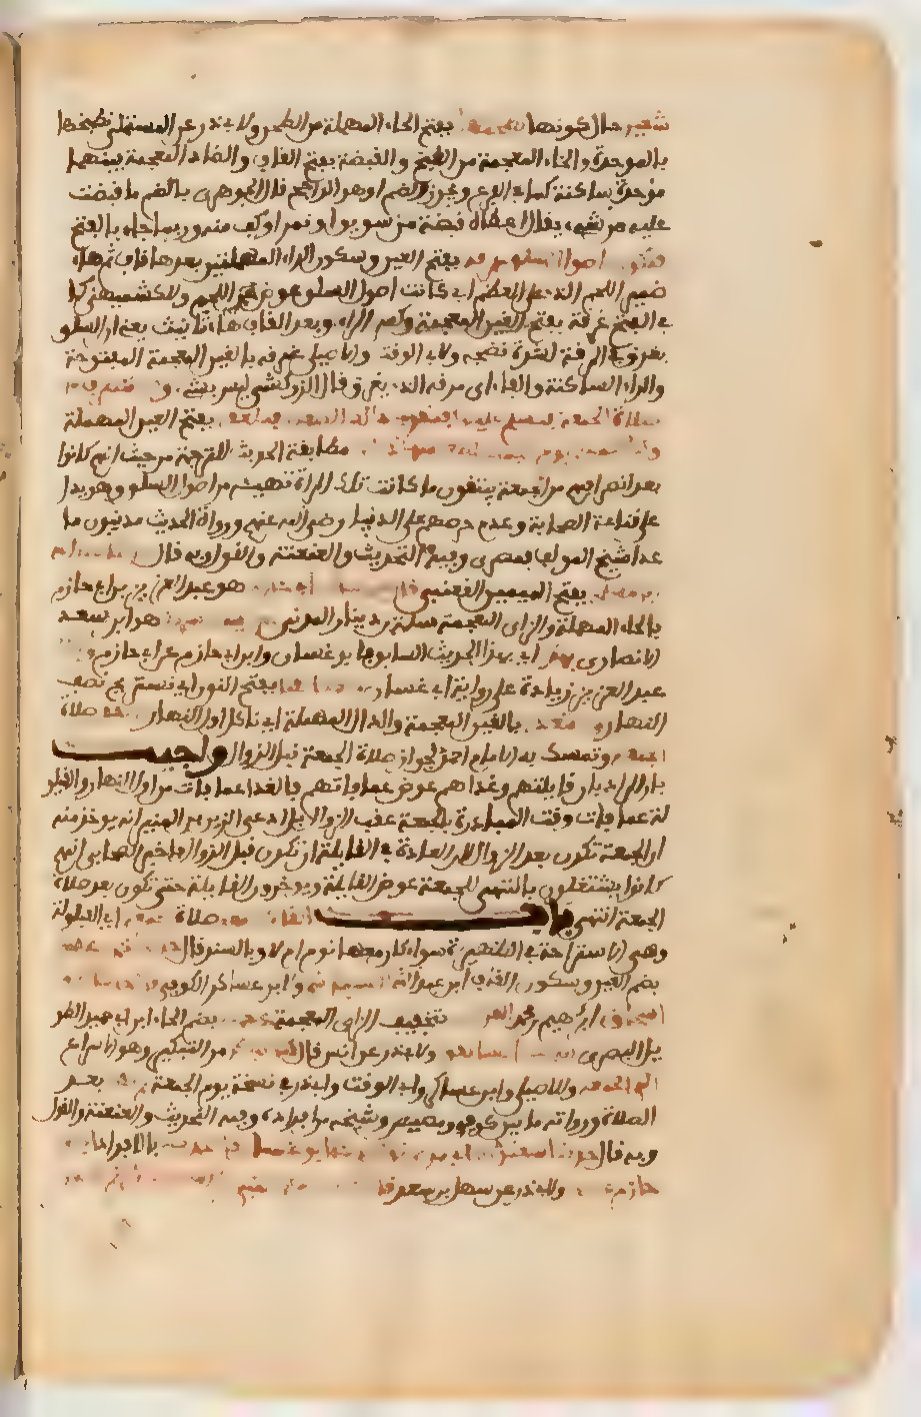 شعير حال كونها تطحنها بفتح الحاء المهملة من الطحن ولابي ذر عن المستملي تطبخها
بالموحدة والخاء المعجمة من الطبخ والقبضة بفتح القاف والضاد المعجمة بينهما
موحدة ساكنة كما في الفرع ويجوز الضم او هو الراجح قال الجوهري بالضم ما قبضت
عليه من شيء يقال اعطاه قبضة من سويق او تمر او كف منه وربما جاء بالفتح
فتكون اصول السلق عرقه بفتح العين وسكون الراء المهملتين بعدها قاف ثم هاء
ضمير اللحم الذي على العظم اي كانت اصول السلق عوض اللحم وللكشميهني كما
في الفتح غرقة بفتح الغين المعجمة وكسر الراء وبعد القاف هاء تانيث يعني ان السلق
يغرق في المرقة لشدة نضجه ولابي الوقت والاصيلي غرفه بالغين المعجمة المفتوحة
والراء الساكنة والفاء اي مرقه الذي يغرف قال الزركشي ليس بشيء وكنا ننصرف من
صلاة الجمعة فنسلم عليها فتقرب ذلك الطعام فنلعقه بفتح العين المهملة
وكنا نتمنى يوم الجمعة لطعامها ذلك مطابقة الحديث للترجمة من حيث انهم كانوا
بعد انصرافهم من الجمعة يبتغون ما كانت تلك المراة تهيئه من اصول السلق وهو يدل
على قناعة الصحابة وعدم حرصهم على الدنيا رضي الله عنهم ورواة الحديث مدنيون ما
عدا شيخ المولف فمصري وفيه التحديث والعنعنة والقول وبه قال حدثنا عبد الله
بن مسلمة بفتح الميمين القعنبي قال حدثنا ابن ابي حازم هو عبد العزيز بن ابي حازم
بالحاء المهملة والزاي المعجمة سلمة بن دينار المدني عن ابيه عن سهل هو ابن سعد
الانصاري بهذا اي بهذا الحديث السابق وابو غسان وابن ابي حازم عن ابي حازم و
عبد العزيز زيادة على رواية ابي غسان ما كنا نقيل بفتح النون اي نستريح نصف
النهار ولا نتغدى بالغين المعجمة والدال المهملة اي ناكل اول النهار الا بعد صلاة
الجمعة وتمسك به الامام احمد لجواز صلاة الجمعة قبل الزوال واجيب
بان المراد بان قايلتهم وغداهم عوض عما فاتهم فالغداء عما فات من اول النهار والقيلو
لة عما فات وقت المبادرة بالجمعة عقب الزوال بل ادعى الزين بن المنير انه يوخذ منه
ان الجمعة تكون بعد الزوال لان العادة في القايلة ان تكون قبل الزوال فاخبر الصحابي انهم
كانوا يشتغلون بالتهيي للجمعة عوض القايلة ويوخرون القايلة حتى تكون بعد صلاة
الجمعة انتهى باب القائلة بعد صلاة الجمعة اي القيلولة
وهي الاستراحة في الظهيرة سواء كان معها نوم ام لا وبالسند قال حدثنا محمد بن عقبة
بضم العين وسكون القاف ابن عبد الله الشيباني وابن عساكر الكوفي قال حدثنا ابو
اسحاق ابراهيم بن محمد الفزاري بتخفيف الزاي المعجمة عن حميد بضم الحاء ابن ابي حميد الطو
يل البصري قال سمعت انسا يقول ولابي ذر عن انس قال كنا نبكر من التبكير وهو الاسراع
الى الجمعة وللاصيلي وابن عساكر وابي الوقت وابي ذر في نسخة يوم الجمعة ثم نقيل بعد
الصلاة ورواته ما بين كوفي ومصيصي وشيخه من افراده وفيه التحديث والعنعنة والقول
وبه قال حدثنا سعيد بن ابي مريم قال حدثنا ابو غسان قال حدثني بالافراد ابو
حازم عن ولابي ذر عن سهل بن سعد قال كنا نصلي مع النبي صلى الله عليه وسلم